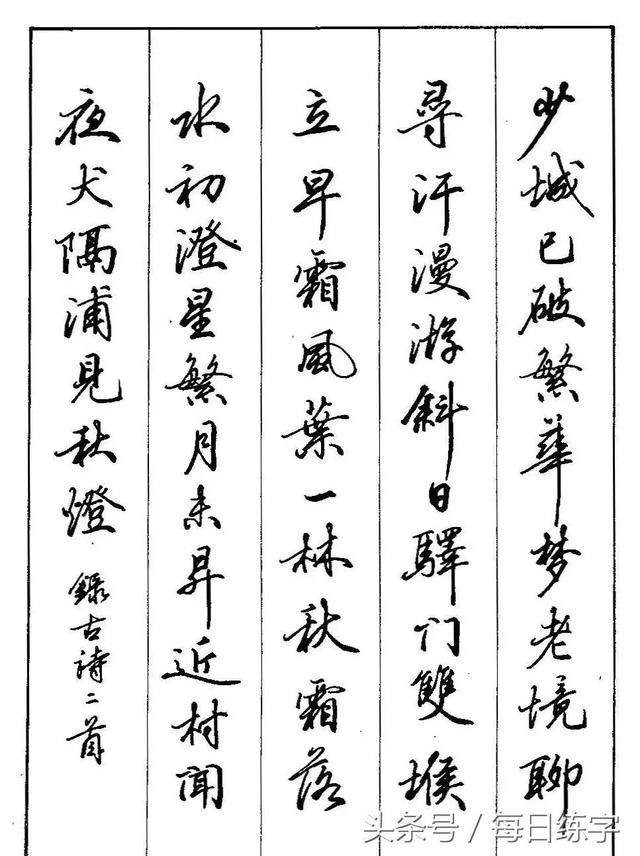 少城已破繁華梦老境聊
尋汗漫游斜日驛门雙堠
立早霜風葉一林秋霜落
水初澄星繁月未昇近村聞
夜犬隔浦見秋燈 錄古詩二首
头条号／每日练字